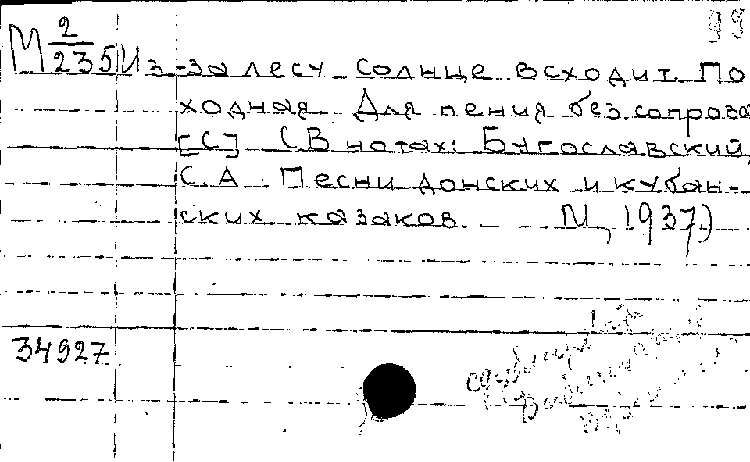 99
М 2/235 Из-за лесу солнце всходит. По
ходная. Для пения без сопрово
[С] (В нотах: Богославский,
С.А. Песни донских и кубан-
ских казаков. М, 1937)
34927